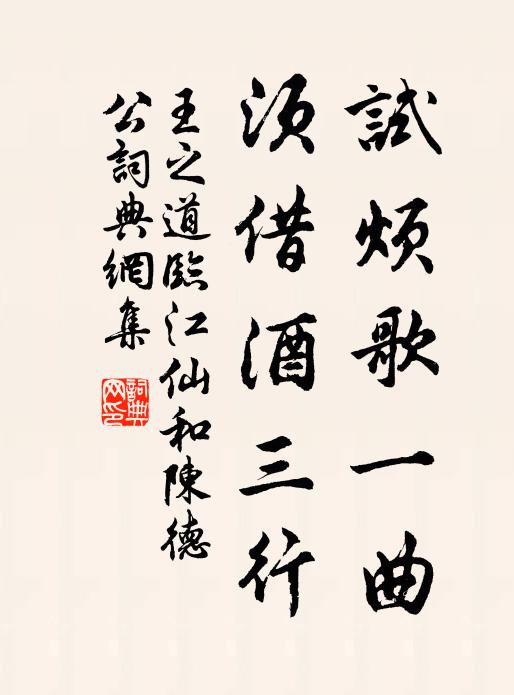 試煩歌一曲
須借酒三行
王之道臨江仙和陳德
公詞典網集
詞典
网印